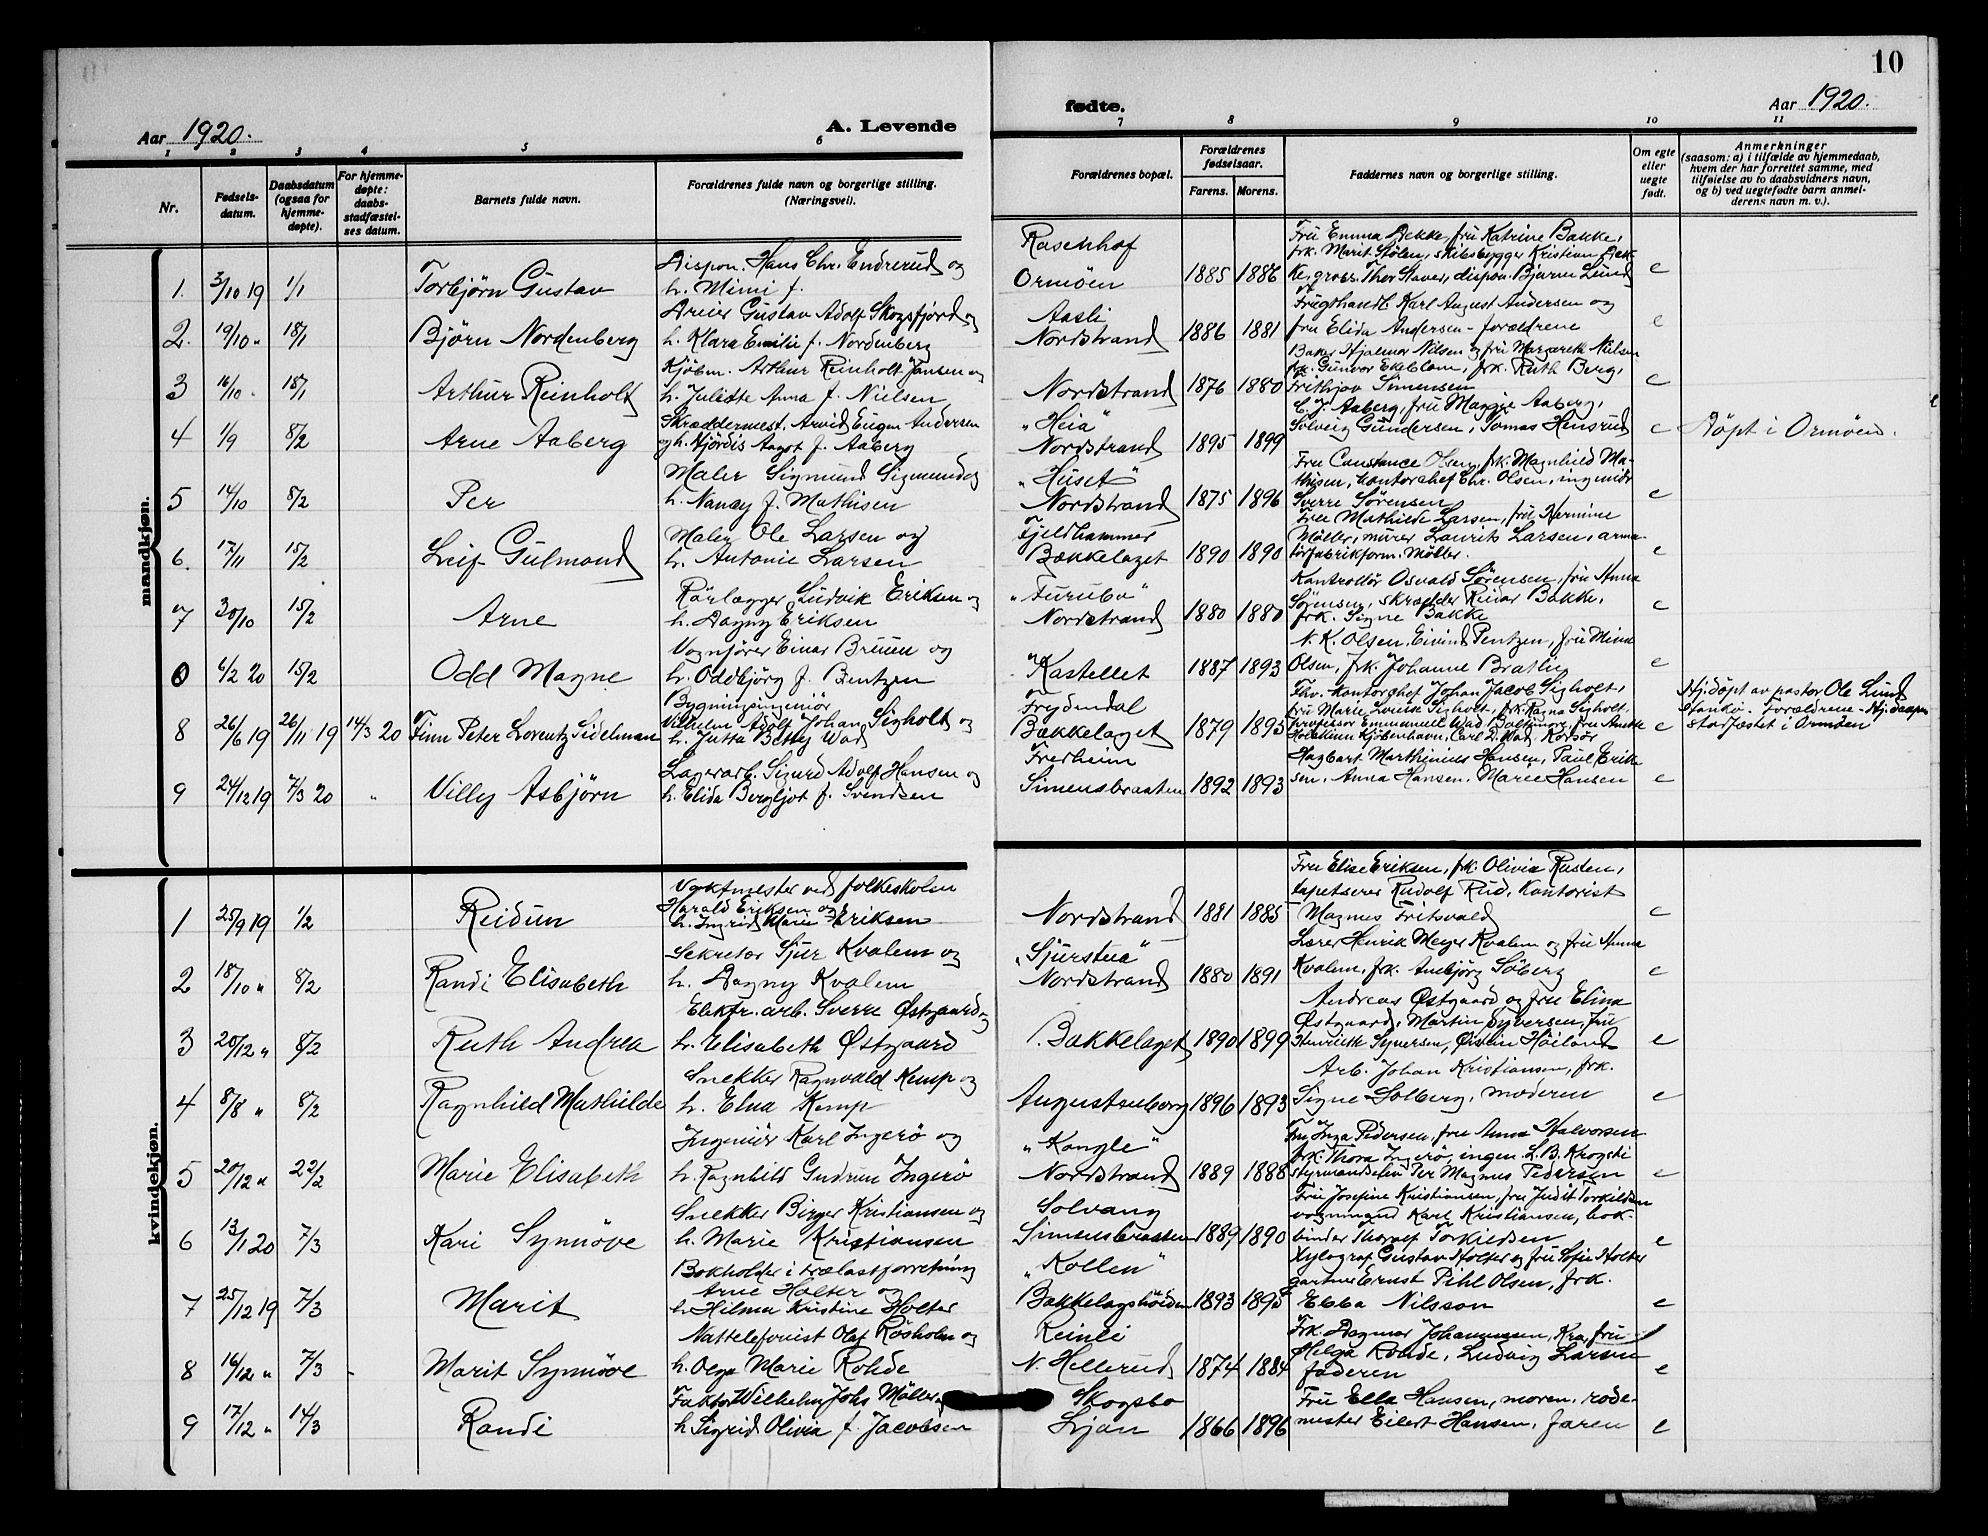 10
Aar 1920.
A. Levende
fødte.
Aar 1920.
1 2 3 4 5 6 7 8 9 10 11
Nr.
Fødsels-
datum.
Daabsdatum
(ogsaa for
hjemme-
døpte).
For hjemme-
døpte:
daabs-
stadfæstel-
ses datum.
Barnets fulde navn.
Forældrenes fulde navn og borgerlige stilling.
(Næringsvei).
Forældrenes bopæl.
Forældrenes
fødselsaar.
Farens. Morens.
Faddernes navn og borgerlige stilling.
Om egte
eller
uegte
født.
Anmerkninger
(saasom: a) i tilfælde av hjemmedaab,
hvem der har forrettet samme, med
tilføielse av to daabsvidners navn,
og b) ved uegtefødte barn anmel-
derens navn m. v.).
mandkjøn.
Rosenhof
Fru Emma Dekke, fru Katrine Bakke,
Dispon. Hans Chr. Endrerud og
frk. Marit Stölen, skibsbygger Kristian Dek-
1. 3/10 19 1/1 Torbjörn Gustav h. Mimi f. Ormöen 1885 1886 ke, gross. Thor Staver, dispon. Bjarne Lund e
Dreier Gustav Adolf Skogsfjord og
Aasli
Frugthandl. Karl August Andersen og
2. 19/10 " 18/1 Björn Nordenberg h. Klara Emilie f. Nordenberg Nordstrand 1886 1881 fru Elida Andersen - forældrene e
Kjöbm. Arthur Reinholt Jansen og
Baker Hjalmar Nilsen og fru Margareth Nielsen
frk. Gunvor Ekeblom, frk. Ruth Berg,
3 16/10 " 18/1 Arthur Reinholt h. Juliette Anna f. Nielsen Nordstrand 1876 1880 Frithjov Simensen e
Skræddermest. Arvid Eugen Andersen
"Heia"
C. J. Aaberg, fru Maggie Aaberg,
4 1/9 8/2 Arne Aaberg og h. Hjördis Aagot f. Aaberg Nordstrand 1895 1899 Solveig Gundersen, Tomas Hensrud e Döpt i Ormöen.
Maler Sigmund Sigmundsg
"Huset"
Fru Constance Olsen, frk. Magnhild Ma-
thisen, kontorchef Chr. Olsen, ingeniör
5 14/10 8/2 Per h. Nancy f. Mathisen Nordstrand 1875 1896 Sverre Sörensen e
Maler Ole Larsen og
Fjeldhammer
Fru Mathilde Larsen, fru Hermine
Möller, murer Laurits Larsen, arma-
6 17/11 15/2 Leif Gulmond h. Antonie Larsen Bækkelaget 1890 1890 törfabrikform. Möller. e
Rörlægger Ludvik Eriksen og
"Furubo"
Kontrollör Osvald Sörensen, fru Anna
Sörensen, skrædder Reidar Bakke,
7 30/10 15/2 Arne h. Dagny Eriksen Nordstrand 1880 1880 frk. Signe Bakke e
Vognfører Einar Bruun og
N. K. Olsen, Eivind Bentzen, fru Mina
6/2 20 15/2 Odd Magne h. Oddbjörg f. Bentzen "Kastellet 1887 1893 Olsen, frk. Johanne Bratlie e
Bygningsingeniör
Vilhelm Adolf Johan Sigholt og
Frydendal
Fhv. Kontorchef Johan Jacob Sigholt,
fru Marie Lovise Sigholt, frk. Ragna Sigholt,
professor Emmanuell Wad Baltimore, fru
8 26/6 19 26/11 19 14/3 20 Finn Peter Lorentz Sidelman h. Jutta Betty Wad Bækkelaget 1879 1895 Kjöbenhavn, Carl D. Wad, Korsör e
Hj.döpt av pastor Ole Lund
Hankø. Forældrene - Hj.daapen
stadfæstet i Ormöen
Lagerarb. Sigurd Adolf Hansen og
Fredheim
Hagbart Marthinius Hansen, Paul Erik-
9 24/12 19 7/3 20 " Villy Asbjörn h. Elida Bergljot f. Svendsen Simensbraaten 1892 1893 sen, Anna Hansen, Marie Hansen e
kvindekjøn.
Vaktmester ved folkeskolen
Harald Eriksen og
Fru Elise Eriksen, frk. Olivia Rusten,
tapetserer Rudolf Rud, kontorist
1 25/9 19 1/2 Reidun h. Ingrid Marie Eriksen Nordstrand 1881 1885 Magnus Fritsvold e
Sekretær Sjur Kvalem og
"Sjurstua"
Lærer Henrik Meyer Kvalem og fru Anna
2 18/10 " 8/2 Randi Elisabeth h. Dagny Kvalem Nordstrand 1880 1891 Kvalem, frk. Anbjörg Söberg e
Elektr. arb. Sverre Østgaard og
Andreas Østgaard og fru Elina
Østgaard, Martin Syversen, fru
3 20/12 " 8/2 Ruth Andrea h. Elisabeth Østgaard Bækkelaget 1890 1899 Henriette Syversen, Øistein Höiland e
Snekker Ragnvald Kemp og
Arb. Johan Kristiansen, frk.
4 8/8 " 8/2 Ragnhild Mathilde h. Elna Kemp Augustenborg 1896 1893 Signe Solberg, moderen e
Ingeniör Karl Ingerö og
"Kongle"
Fru Inga Pedersen, fru Anna Halvorsen
frk. Thora Ingerö, ingen. L.B. Krogsti
5 20/12 " 22/2 Marie Elisabeth h. Ragnhild Gudrun Ingerö Nordstrand 1889 1888 styrmandselev Per Magnus Pedersen e
Snekker Birger Kristiansen og
Solvang
Fru Josefine Kristiansen, fru Judit Torkildsen
vognmand Karl Kristiansen, bok-
6 13/1 20 7/3 Kari Synnöve h. Marie Kristiansen Simensbraaten 1889 1890 binder Thoralf Torkildsen e
Bokholder i trælastforretning
Arne Holter og
"Kollen"
Xylograf Gustav Holter og fru Sofie Holter
gartner Ernst Pihl Olsen, frk.
7 25/12 19 7/3 Marit h. Hilma Kristine Holter Bækkelagshöiden 1893 1895 Ebba Nilsson e
Nattelefonist Olaf Rösholm og
Reinli
Frk. Dagmar Johannessen, Kra, fru
Helga Rohde, Ludvig Larsen
8 16/12 " 7/3 - Marit Synnöve h. Olga Marie Rohde N. Hellerud 1874 1884 faderen e
Faktor Wilhelm Johs Möller og
Skogsbo
Fru Ella Hansen, moren, rode-
9 17/12 " 14/3 Randi h. Sigrid Olivia f. Jacobsen Ljan 1866 1896 mester Eilert Hansen, faren e